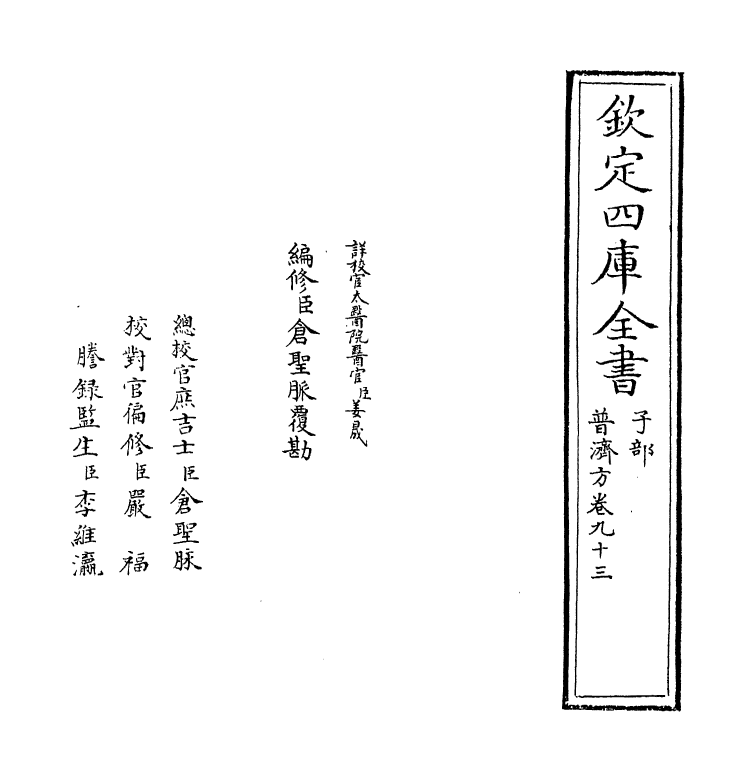 欽定四庫全書
子部
普濟方卷九十三
詳校官太醫院醫官臣姜晟
編修臣倉聖脈覆勘
總校官庶吉士臣倉聖脈
校對官編修臣嚴福
謄錄監生臣李維瀛